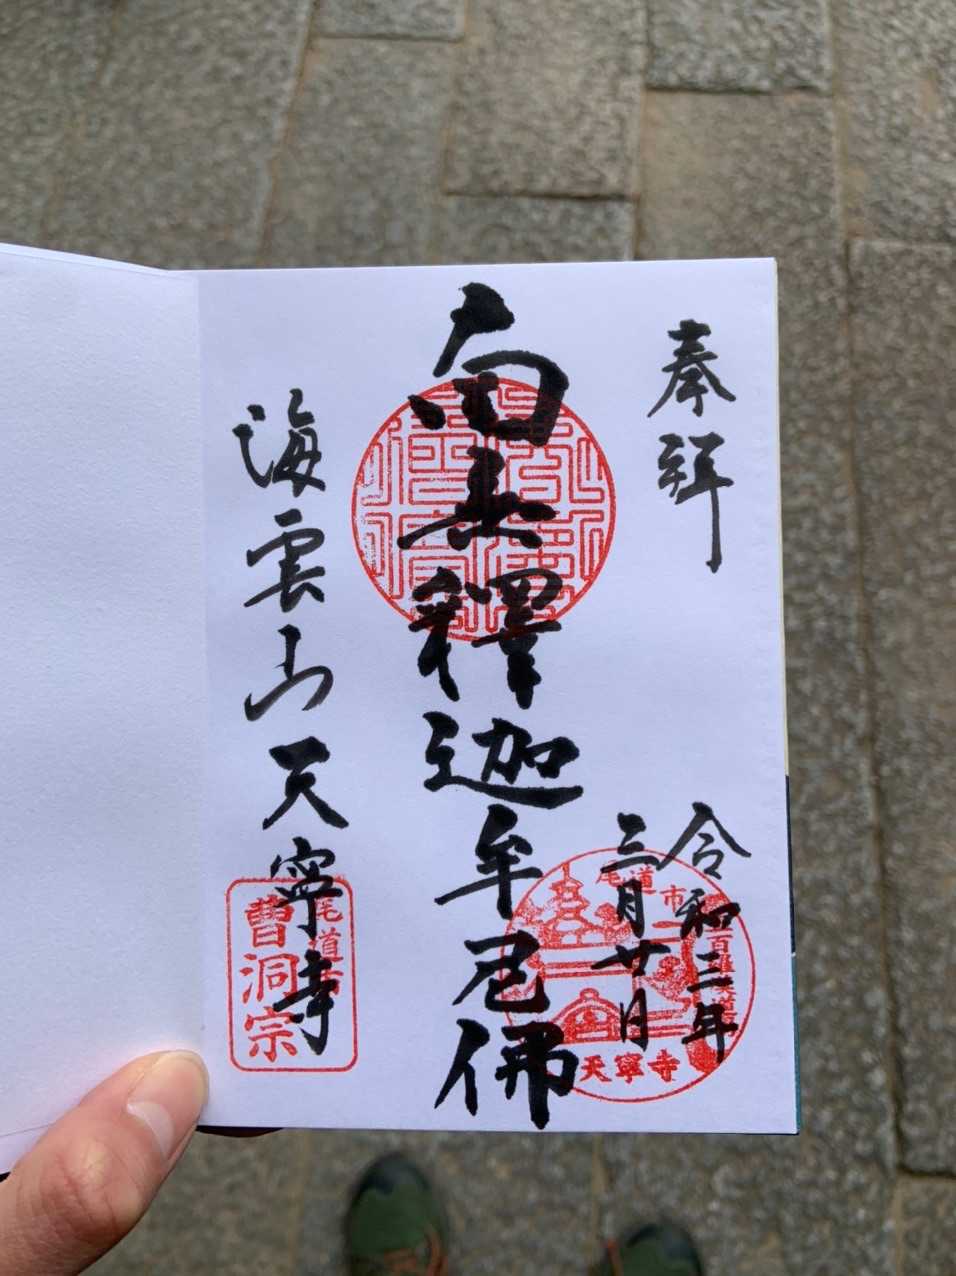 奉拝
令和二年
三月廿日
南無釋迦牟尼佛
海雲山天寧寺
尾道市
天寧寺
尾道市
曹洞宗